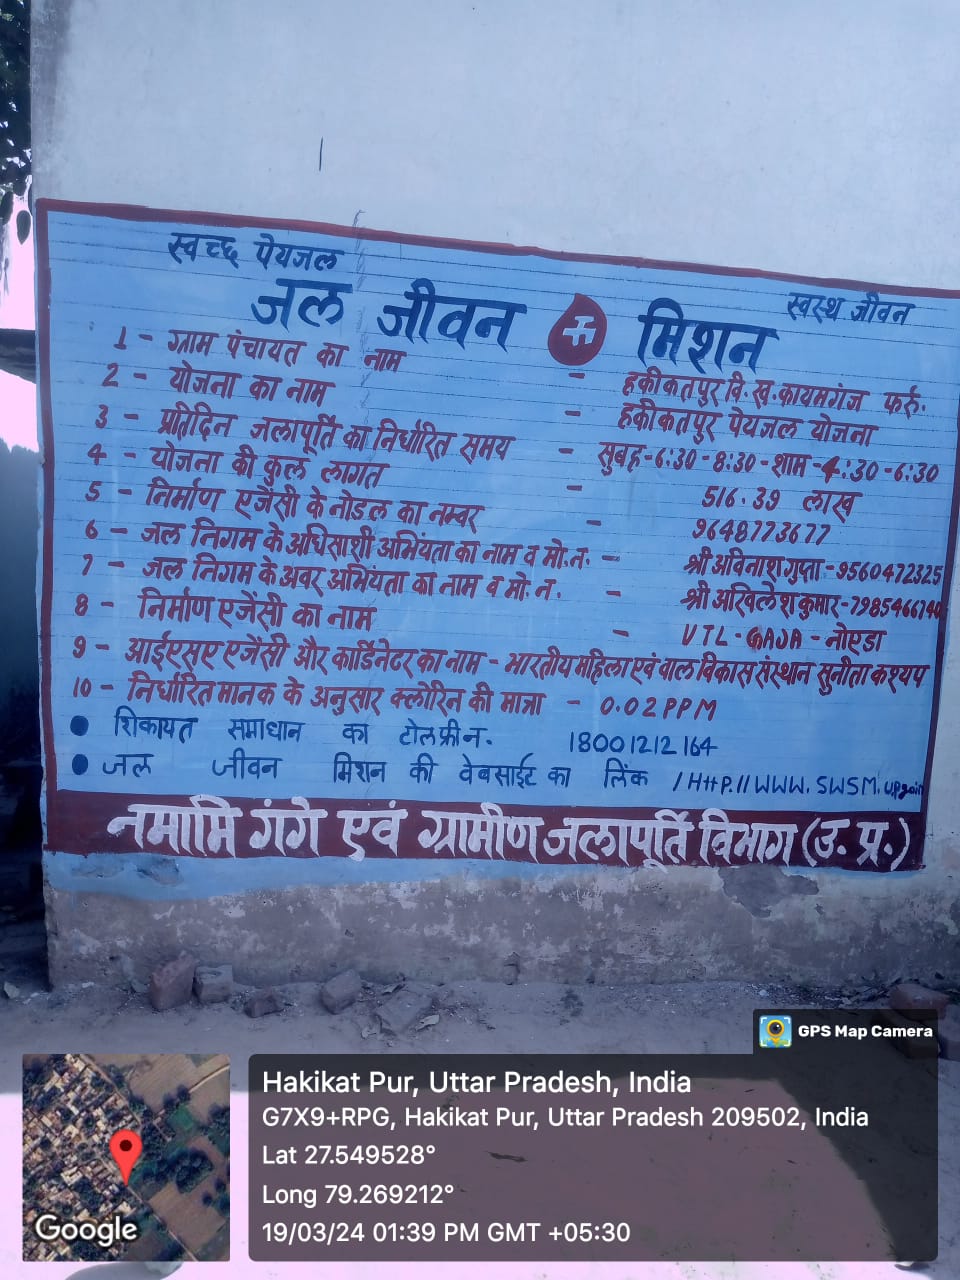 स्वच्छ पेयजल
स्वस्थ जीवन
जल जीवन मिशन
1 - ग्राम पंचायत का नाम - हकीकतपुर वि.ख.कायमगंज फर्रु.
2 - योजना का नाम - हकीकतपुर पेयजल योजना
3 - प्रतिदिन जलापूर्ति का निर्धारित समय - सुबह-6:30-8:30-शाम-4:30-6:30
4 - योजना की कुल लागत - 516.39 लाख
5 - निर्माण एजेंसी के नोडल का नम्बर - 9648773677
6 - जल निगम के अधिसाशी अभियंता का नाम व मो.न. - श्री अविनाश गुप्ता-9560472325
7 - जल निगम के अवर अभियंता का नाम व मो.न. - श्री अखिलेश कुमार-
8 - निर्माण एजेंसी का नाम - VTL-GAJA-नोएडा
9 - आईएसए एजेंसी और कार्डिनेटर का नाम - भारतीय महिला एवं बाल विकास संस्थान सुनीता कश्यप
10 - निर्धारित मानक के अनुसार क्लोरिन की मात्रा - 0.02 PPM
● शिकायत समाधान का टोलफ्री न. 18001212164
● जल जीवन मिशन की वेबसाईट का लिंक /Http.//WWW.SWSM.
नमामि गंगे एवं ग्रामीण जलापूर्ति विभाग (उ.प्र.)
GPS Map Camera
Hakikat Pur, Uttar Pradesh, India
G7X9+RPG, Hakikat Pur, Uttar Pradesh 209502, India
Lat 27.549528°
Long 79.269212°
19/03/24 01:39 PM GMT +05:30
Google